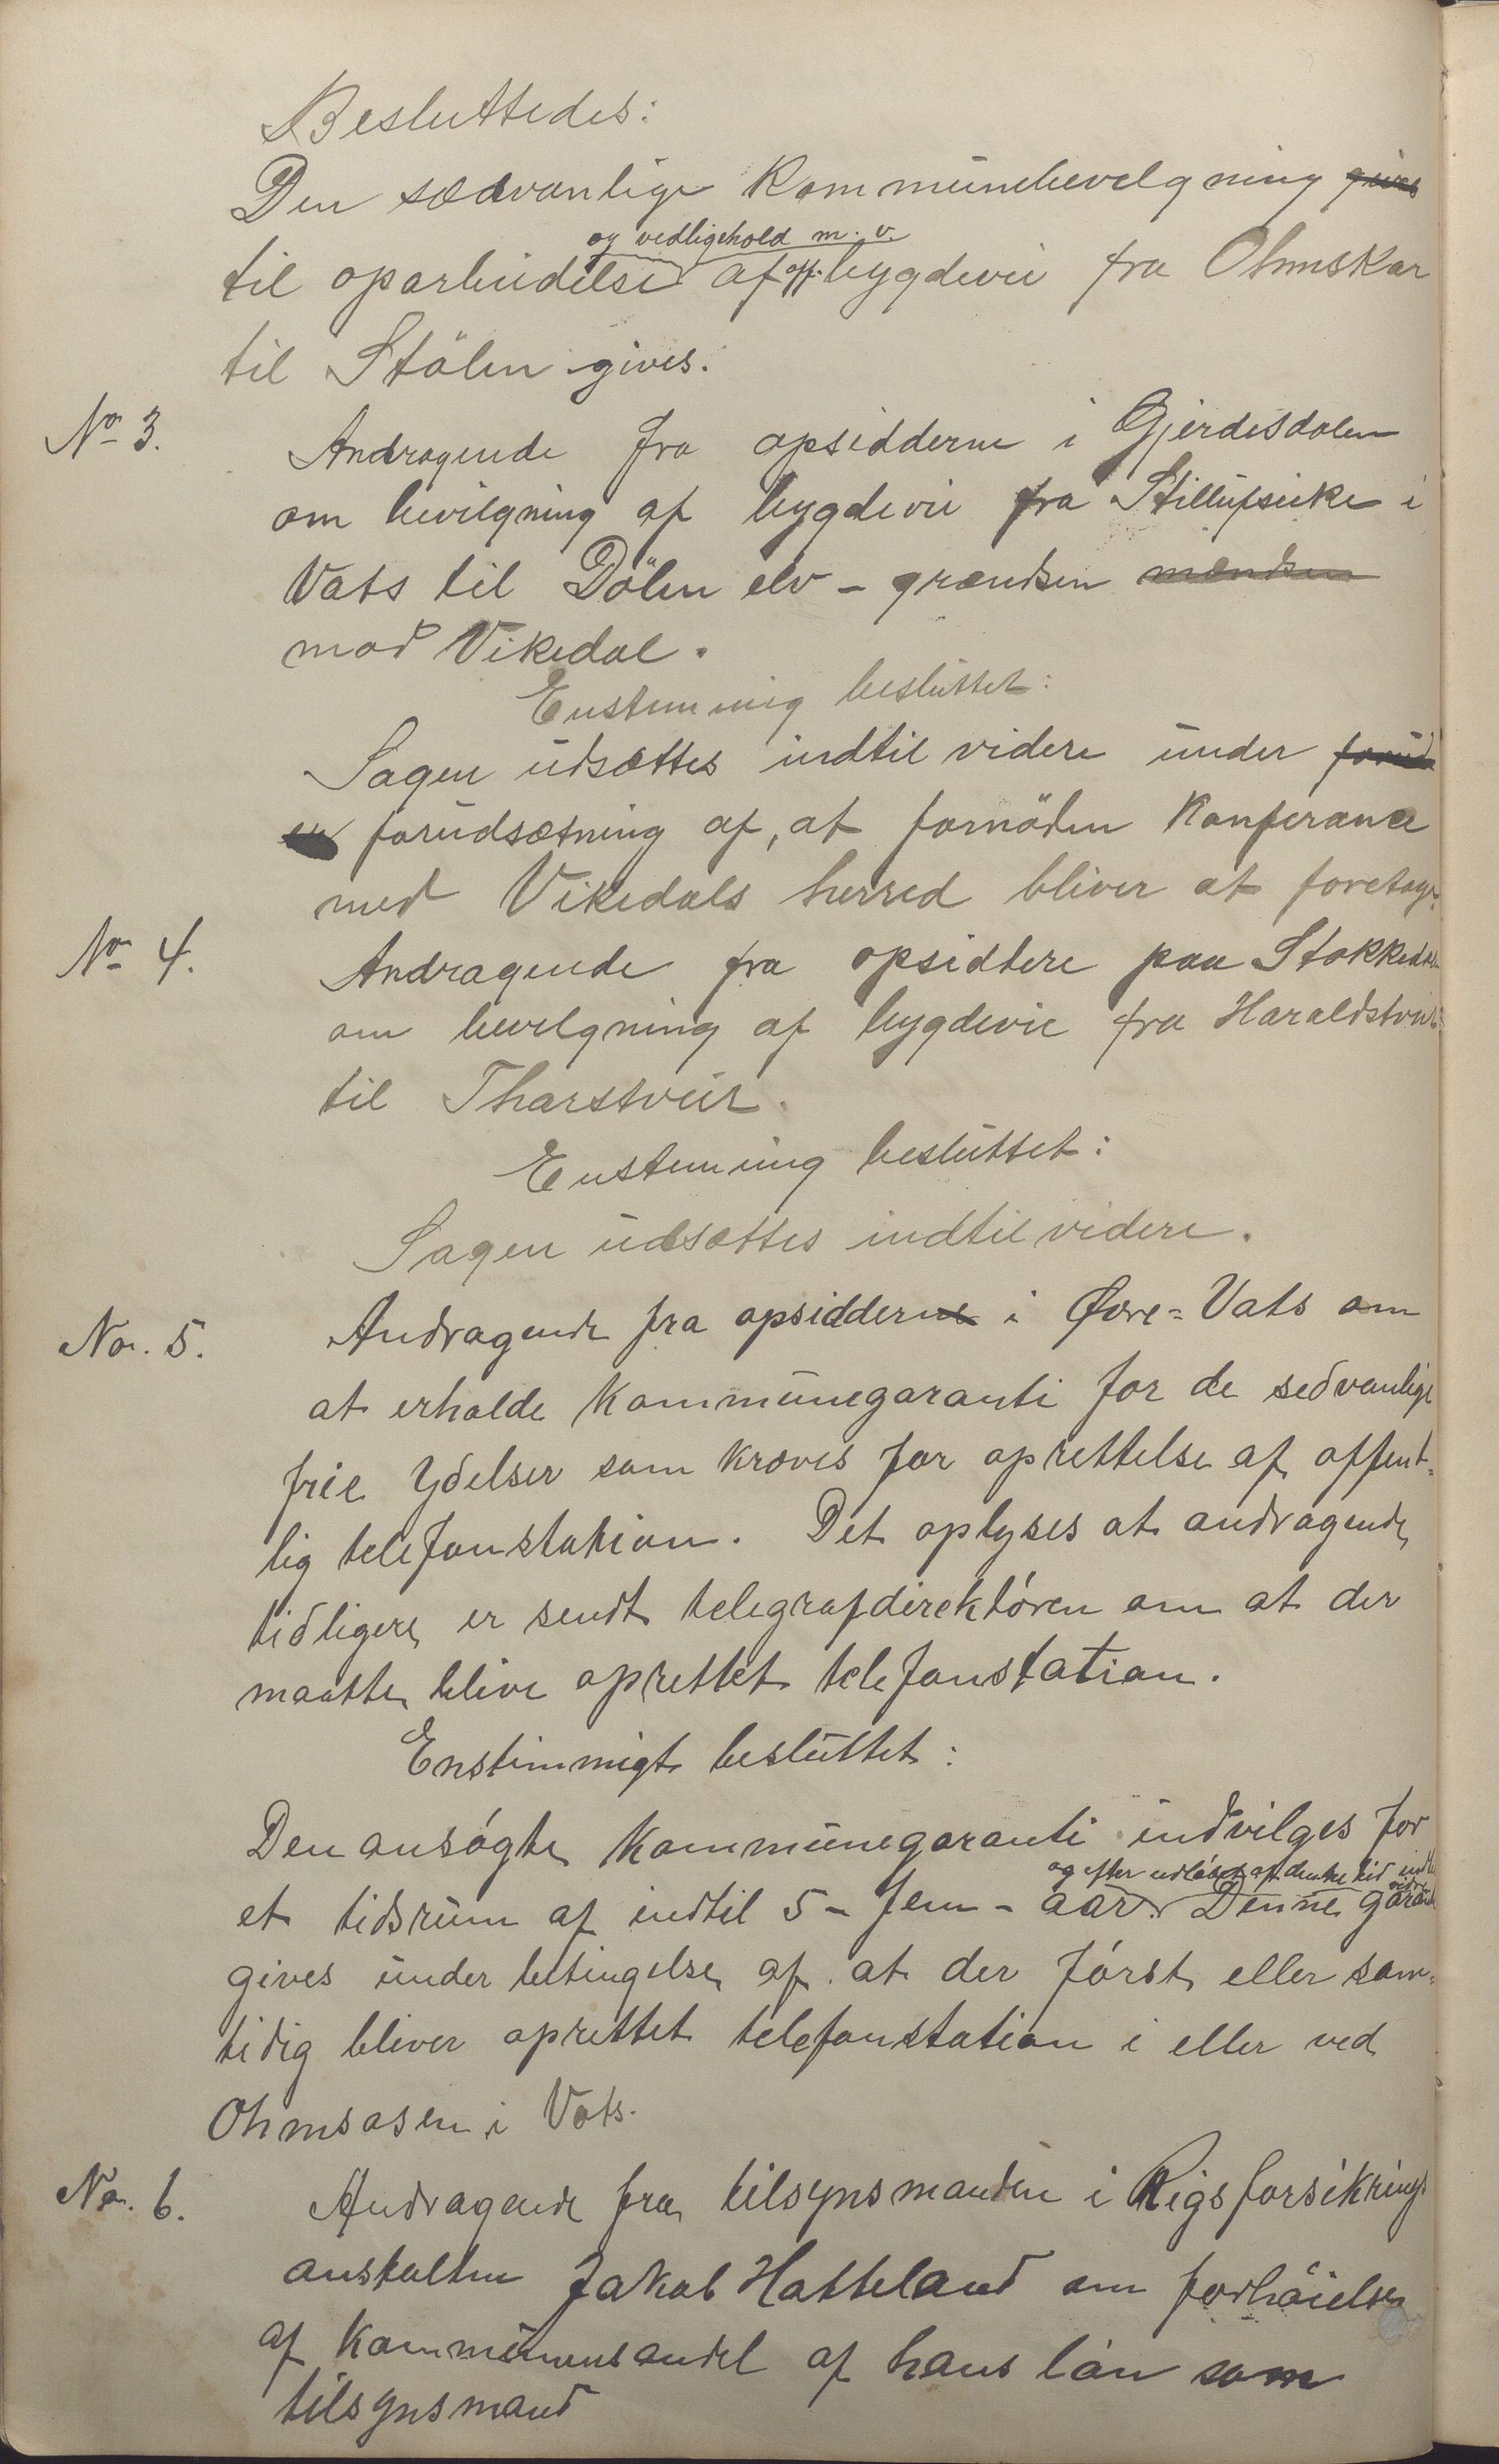 Besluttedes:
Den sædvanlige Kommunebevelgning gives
og vedligehold m. v.
til oparbeidelse af off. bygdevei fra Ohmskar
til Stölen gives.
No 3. Andragende fra opsidderne i Gjerdesdalen
om bevilgning af bygdevei fra i
Vats til Dölen elv - grændsen mændsen
mod Vikedal.
Enstemmig besluttet:
Sagen udsættes indtil videre under forud
en forudsætning af, at fornöden Konferance
med Vikedals herred bliver at foretage.
No 4. Andragende fra opsiddere paa Stokkedal
om bevelgning af bygdevei fra Haraldstveit
til Tharstveit.
Enstemmig besluttet:
Sagen udsættes indtil videre.
No. 5. Andragende fra opsidderne i Øvre=Vats om
at erholde Kommunegaranti for de sedvanlige
frie Ydelser som kræves for oprettelse af offent=
lig telefonstation. Det oplyses at andragende
tidligere er sendt telegrafdirektóren om at der
maatte blive oprettet telefonstation.
Enstimmigt besluttet:
Den ansógte Kommunegaranti indvilges for
og efter udlóbet af denne tid indtil videre
et tidsrum af indtil 5 - fem - aar. Denne garanti
gives under betingelse af at der fórst eller sam=
tidig bliver oprettet telefonstation i eller ved
Ohmsosen i Vats.
No. 6. Andragende fra tilsynsmanden i Rigsforsikrings
anstalten Jakob Hatteland om forhöielse
af Kommunens andel af hans lón som
tilsynsmand